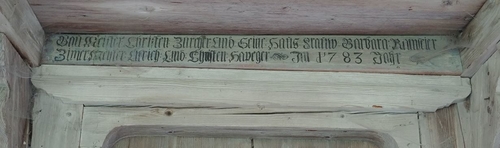 Bau Meister Christen Zürcher Und Seine Haus Frauw Barbara
Zimer Meister Ulrich Und Christen Haueter Im 1783 Jahr